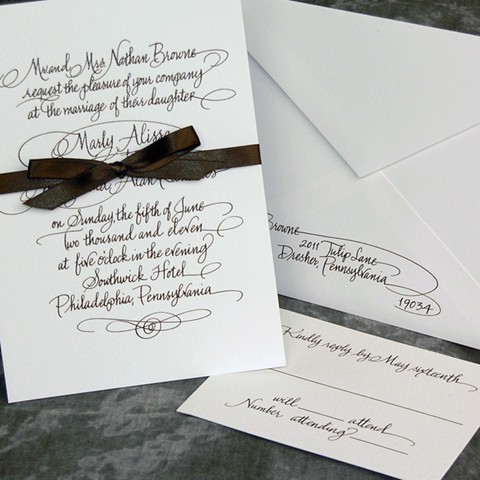 Mr. and Mrs. Nathan Browne
request the pleasure of your company
at the marriage of their daughter
Marly Alissa
on Sunday, the fifth of June
two thousand and eleven
at five o'clock in the evening
Southwick Hotel
Philadelphia, Pennsylvania
Browne
2011 Tulip Lane
Dresher, Pennsylvania
19034
Kindly reply by May sixteenth
will attend
Number attending